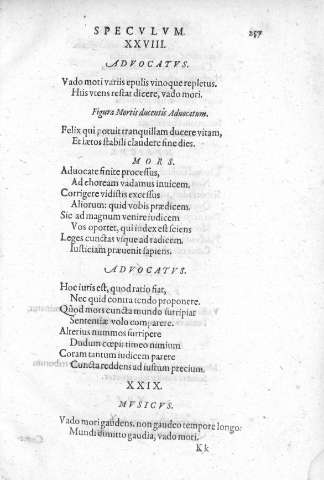 SPECVLVM. 257
XXVIII.
ADVOCATVS.
Vado mori variis epulis vinoque repletus.
His vtens restat dicere, vado mori.
Figura Mortis ducentis Advocatum.
Felix qui potuit tranquillam ducere vitam,
Et lætos stabili claudere fine dies.
MORS.
Aduocate finite processus,
Ad choream vadamus inuicem.
Corrigere vidistis excessus
Aliorum: quid vobis prædicem.
Sic ad magnum venire iudicem
Vos oportet, qui iudex est sciens
Leges cunctas vsque ad radicem.
Iusticiam præuenit sapiens.
ADVOCATVS.
Hoc iuris est, quod ratio fiat,
Nec quid contra tendo proponere.
Quòd mors cuncta mundo surripiat
Sententiæ volo comparere.
Alterius nummos surripere
Dudum cœpit timeo nimium
Coram tantum iudicem parere
Cuncta reddens ad iustum precium.
XXIX.
MVSICVS.
Vado mori gaudens. non gaudeo tempore longo:
Mundi dimitto gaudia, vado mori.
Kk